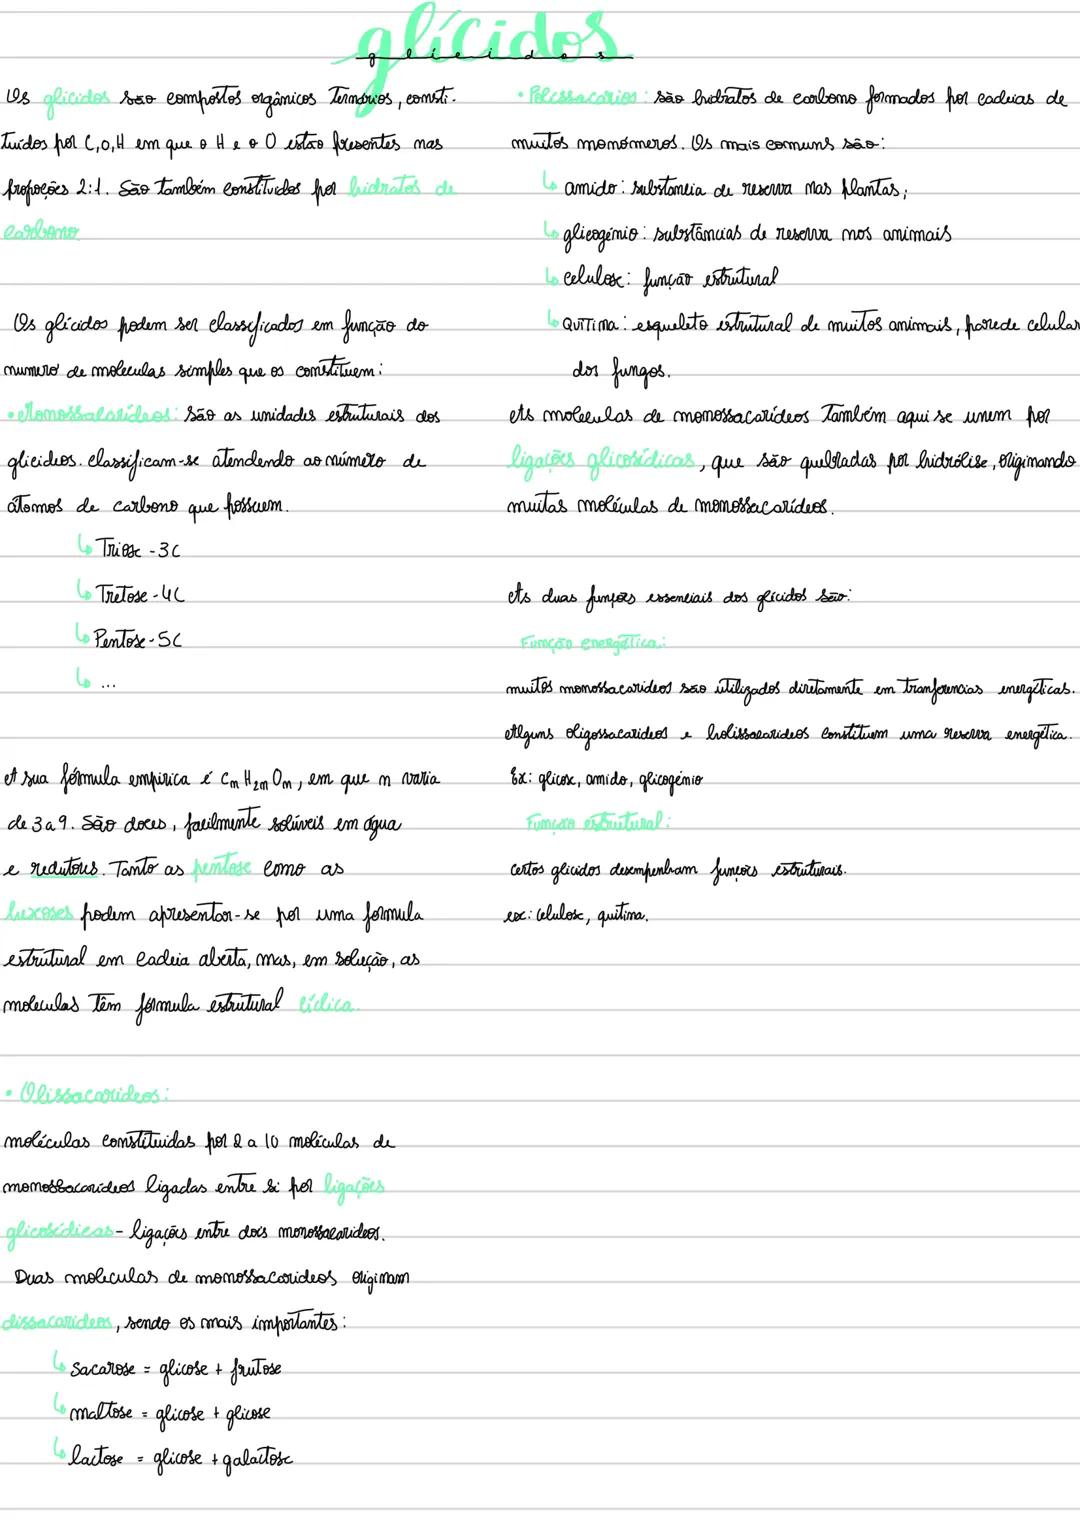 glícidos
glícidos
Os glicidos são compostos orgânicos Ternários, consti-
tuídos por C,O,H em que o H e o O estão presentes nas
propoções 2:1. São também constítuidos por hidratos de
carbono
Os glícidos podem ser classificados em função do
numero de moleculas simples que os constituem:
• Monossacarídeos: São as unidades estruturais dos
glicideos. classificam-se atendendo ao número de
átomos de carbono que possuem.
↳ Triose - 3C
↳ Tretose - 4C
↳ Pentose - 5C
↳ ...
A sua fórmula empirica é CnH2nOn, em que n varia
de 3 a 9. São doces, facilmente solúveis em água
e redutores. Tanto as pentose como as
hexoses podem apresentar-se por uma formula
estrutural em cadeia aberta, mas, em solução, as
moleculas Têm fórmula estrutural cíclica.
• Olissacarideos:
moléculas constituidas por 2 a 10 moléculas de
monossacarideos ligadas entre si por ligações
glicosídicas - ligações entre dois monossacarideos.
Duas moleculas de monossacarideos originam
dissacarideos, sendo os mais importantes:
↳ Sacarose = glicose + frutose
↳ maltose = glicose + glicose
↳ lactose = glicose + galactose
• Polissacarios: são hidratos de carbono formados por cadeias de
muitos monómeros. Os mais comuns são:
↳ amido: substancia de reserva nas plantas;
↳ glicogénio: substâncias de reserva nos animais
↳ celulose: função estrutural
↳ QUITina: esqueleto estrutural de muitos animais, parede celular
dos fungos.
As moleculas de monossacarídeos Também aqui se unem por
ligações glicosídicas, que são quebradas por hidrólise, originando
muitas moléculas de monossacarídeos.
As duas funções essenciais dos glícidos são:
Função energética:
muitos monossacarideos são utilizados diretamente em tranferencias energéticas.
Alguns oligossacarideos e polissacarideos constituem uma reserva energética.
Ex: glicose, amido, glicogénio
Função estrutural:
certos glicidos desempenham funções estruturais.
ex: celulose, quitina.